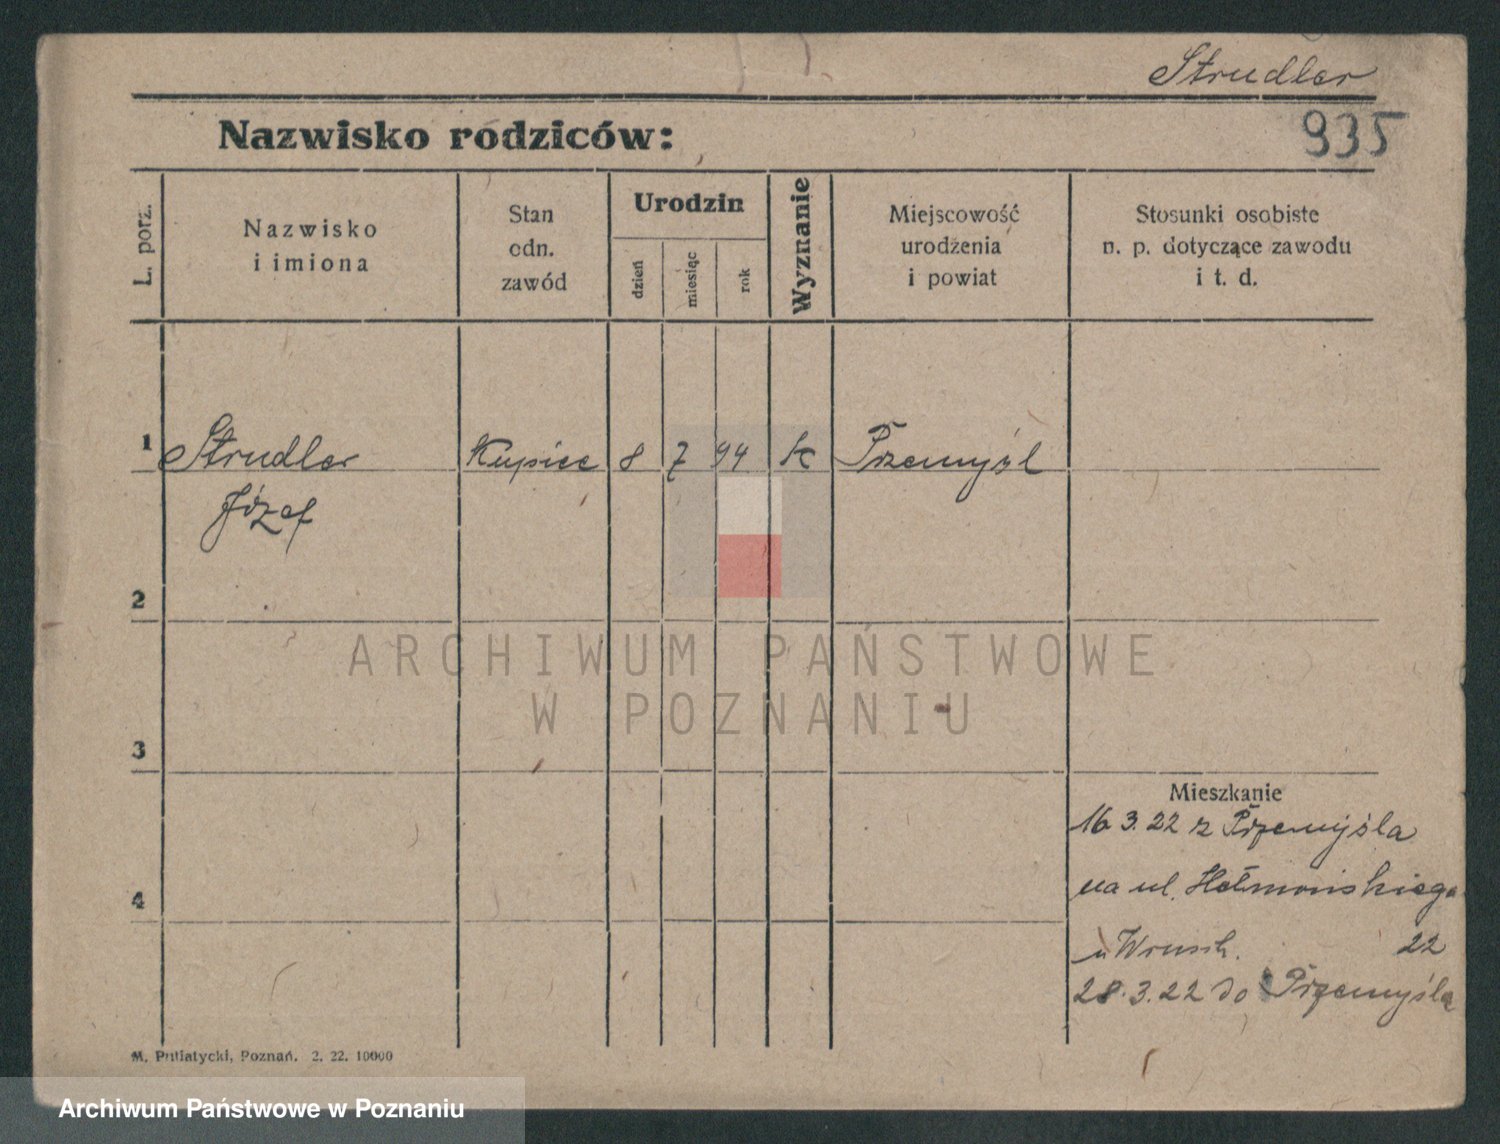 Strudler
935
Nazwisko rodziców:
L. porz.
Nazwisko
i imiona
Stan
odn.
zawód
Urodzin
dzień
miesiąc
rok
Wyznanie
Miejscowość
urodzenia
i powiat
Stosunki osobiste
n. p. dotyczące zawodu
i t. d.
1 Strudler Kupiec 8 7 94 k Przemyśl
Józef
2
3
4
Mieszkanie
16 3. 22 z Przemyśla
na ul.
u 22
28. 3. 22 do Przemyśla
M. Putiatycki, Poznań. 2. 22. 10000
ARCHIWUM PAŃSTWOWE
W POZNANIU
Archiwum Państwowe w Poznaniu